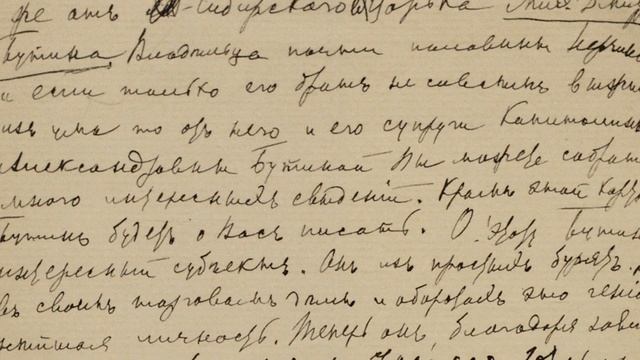 отъ Сибирскаго Царька Мих. Дми
Бутина Владѣльца почти половины Нерчин
и если только его братъ не совсѣмъ выжи
изъ ума то отъ него и его супруги Капитолины
Александровны Бутиной Вы можете собрать
много интересныхъ свѣдѣній. Кромѣ того
Бутинъ будетъ о Васъ писать. О Бутин
интересный субъектъ. Онъ изъ простыхъ бурятъ.
въ своихъ торговыхъ и оборотахъ это гені
личность. Теперь онъ, благодаря зави